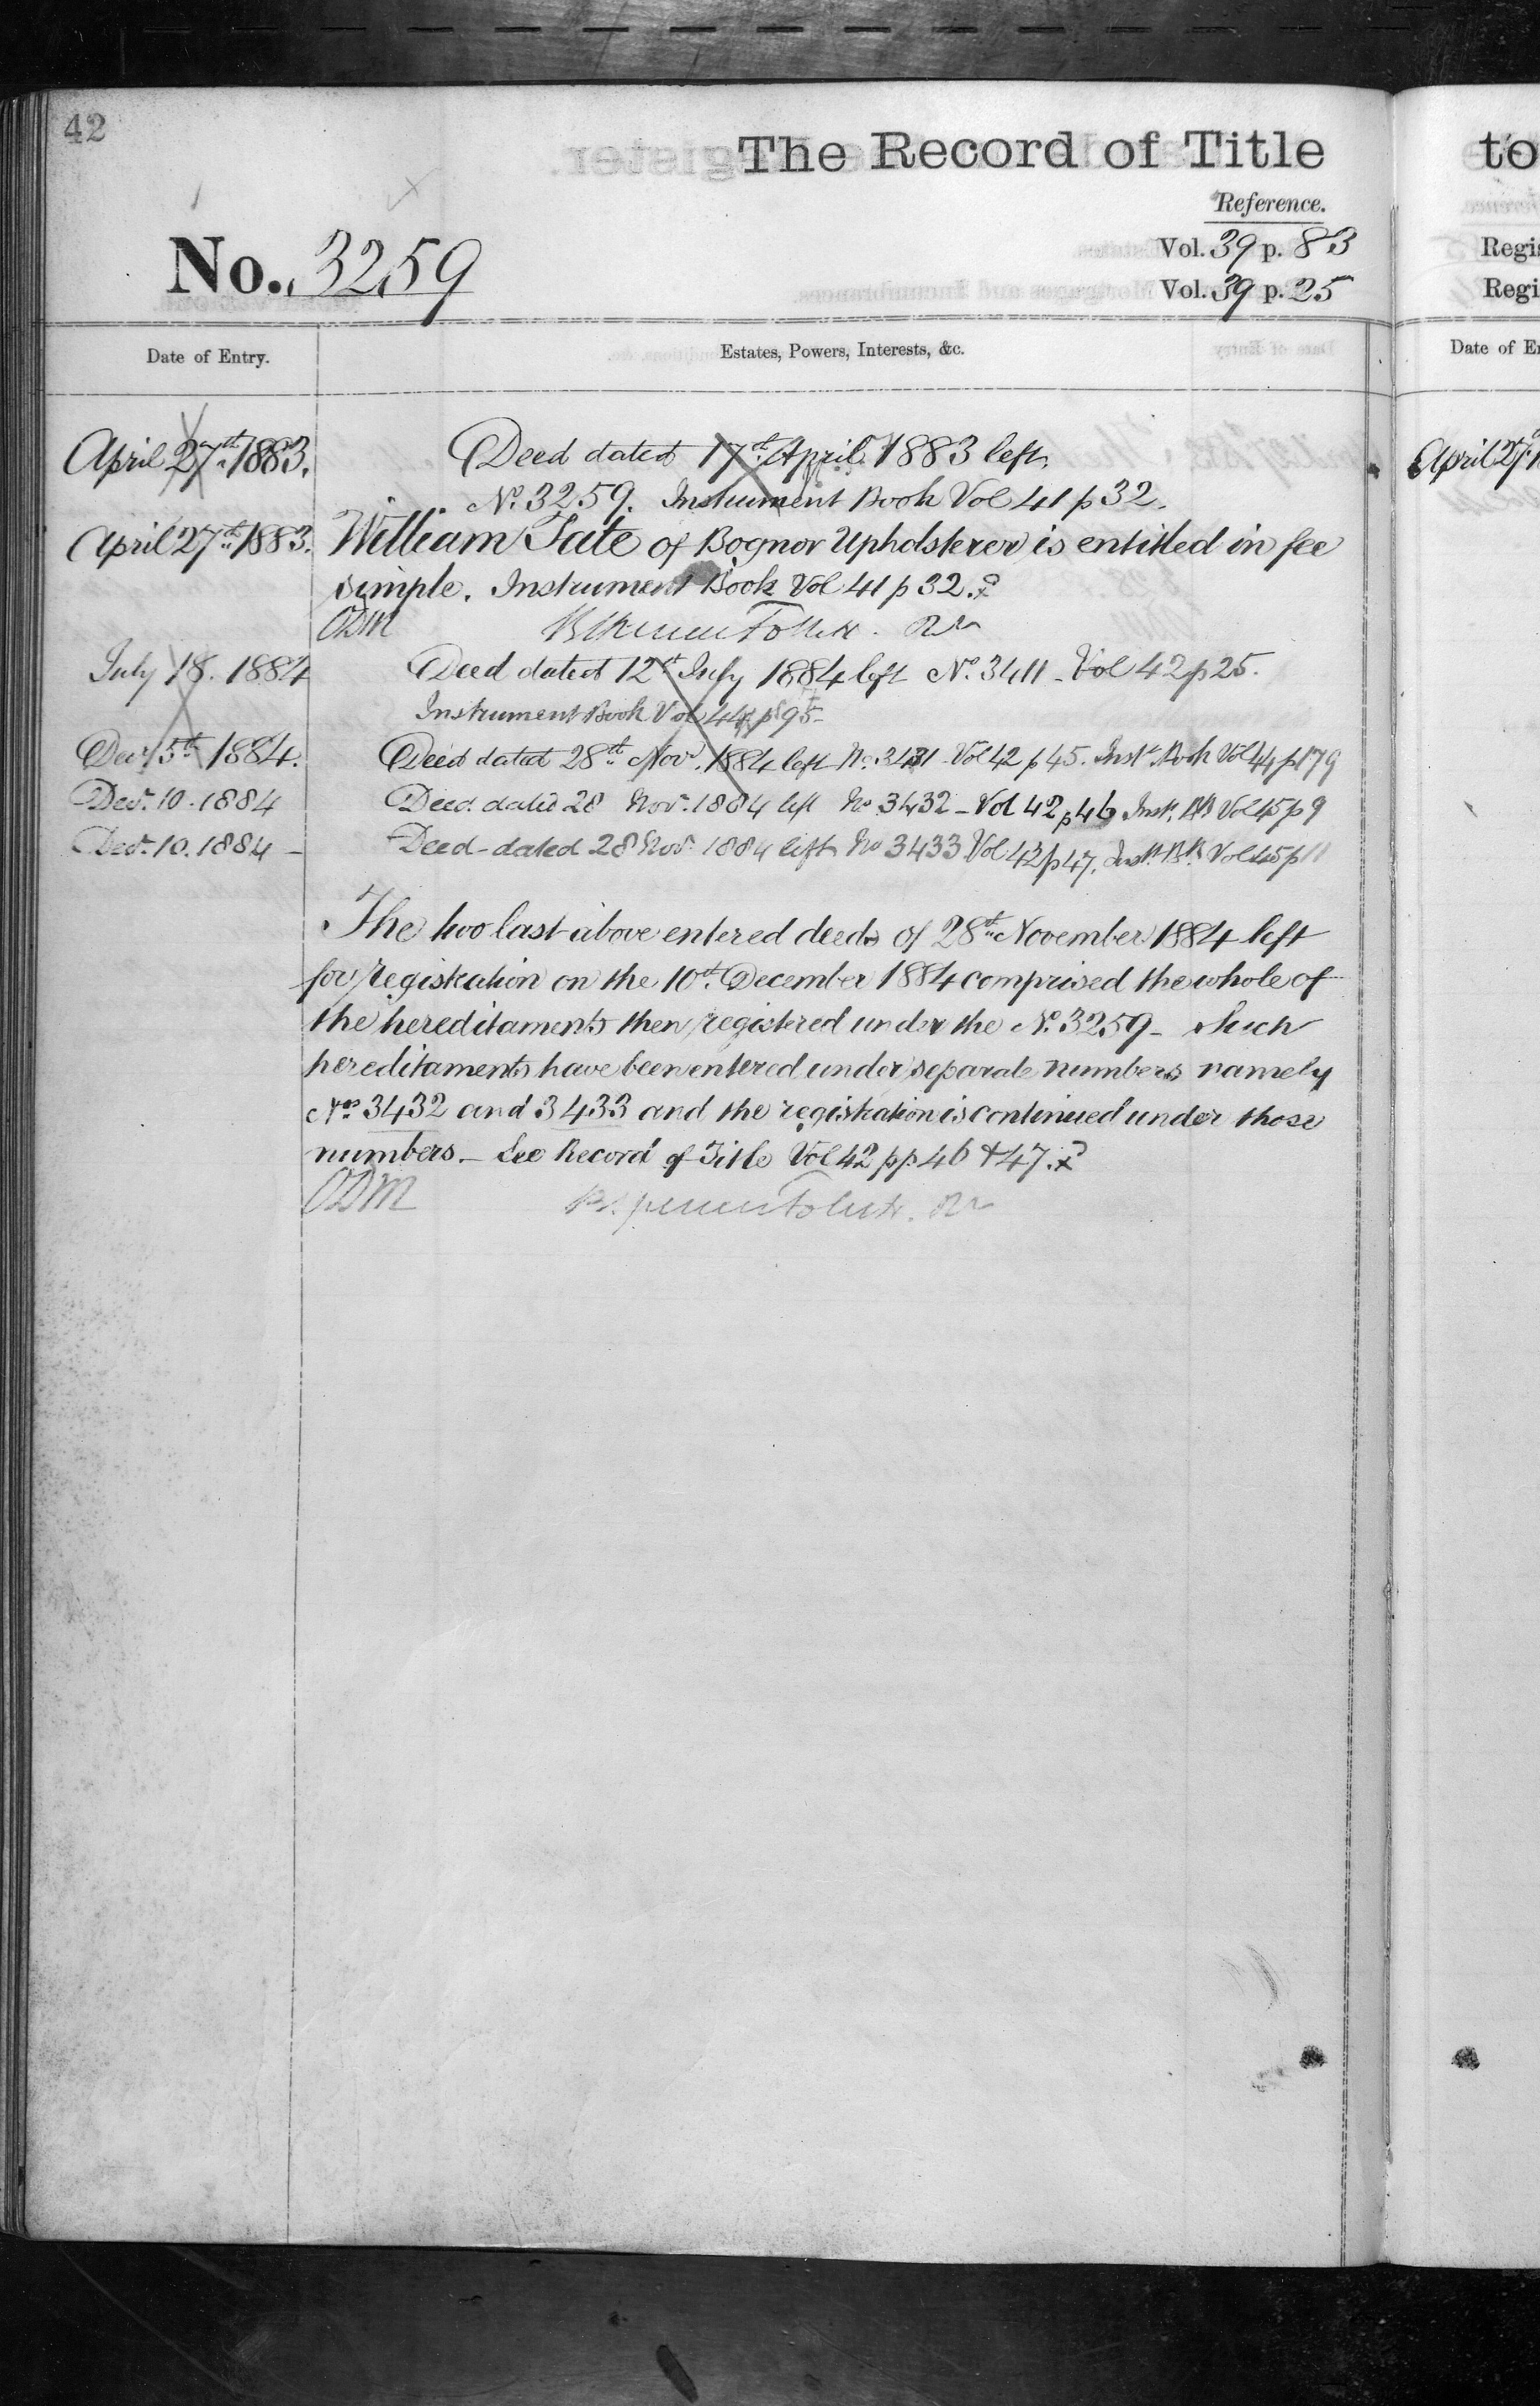 42
The Record of Title
to
Reference.
No. 3259
Vol. 39 p. 83
Regi
Vol. 39 p. 25
Regi
Date of Entry.
Estates, Powers, Interests, &c.
Date of E
April 27th 1883.
Deed dated 17th April 1883 left.
April 27th
No. 3259. Instrument Book Vol 41 p 32.
April 27th 1883.
William Tate of Bognor Upholsterer is entitled in fee
simple. Instrument Book Vol 41 p 32.
ODM
July 18. 1884
Deed dated 12th July 1884 left No. 3411 - Vol 42 p 25.
Instrument Book Vol 44 p 95-
Decr 5th 1884.
Deed dated 28th Novr. 1884 left No. 3431 - Vol 42 p 45. Inst. Book Vol 44 p 179
Decr. 10. 1884
Deed dated 28 Novr. 1884 left No 3432 - Vol 42 p 46 Inst. Bk Vol 45 p 9
Decr. 10. 1884 -
Deed dated 28 Novr. 1884 left No 3433 Vol 42 p 47, Inst. Bk. Vol 45 p 11
The two last above entered deeds of 28th November 1884 left
for registration on the 10th December 1884 comprised the whole of
the hereditaments then registered under the No. 3259 - Such
hereditaments have been entered under separate numbers namely
Nos 3432 and 3433 and the registration is continued under those
numbers. - See Record of Title Vol 42 pp. 46 & 47.
ODM